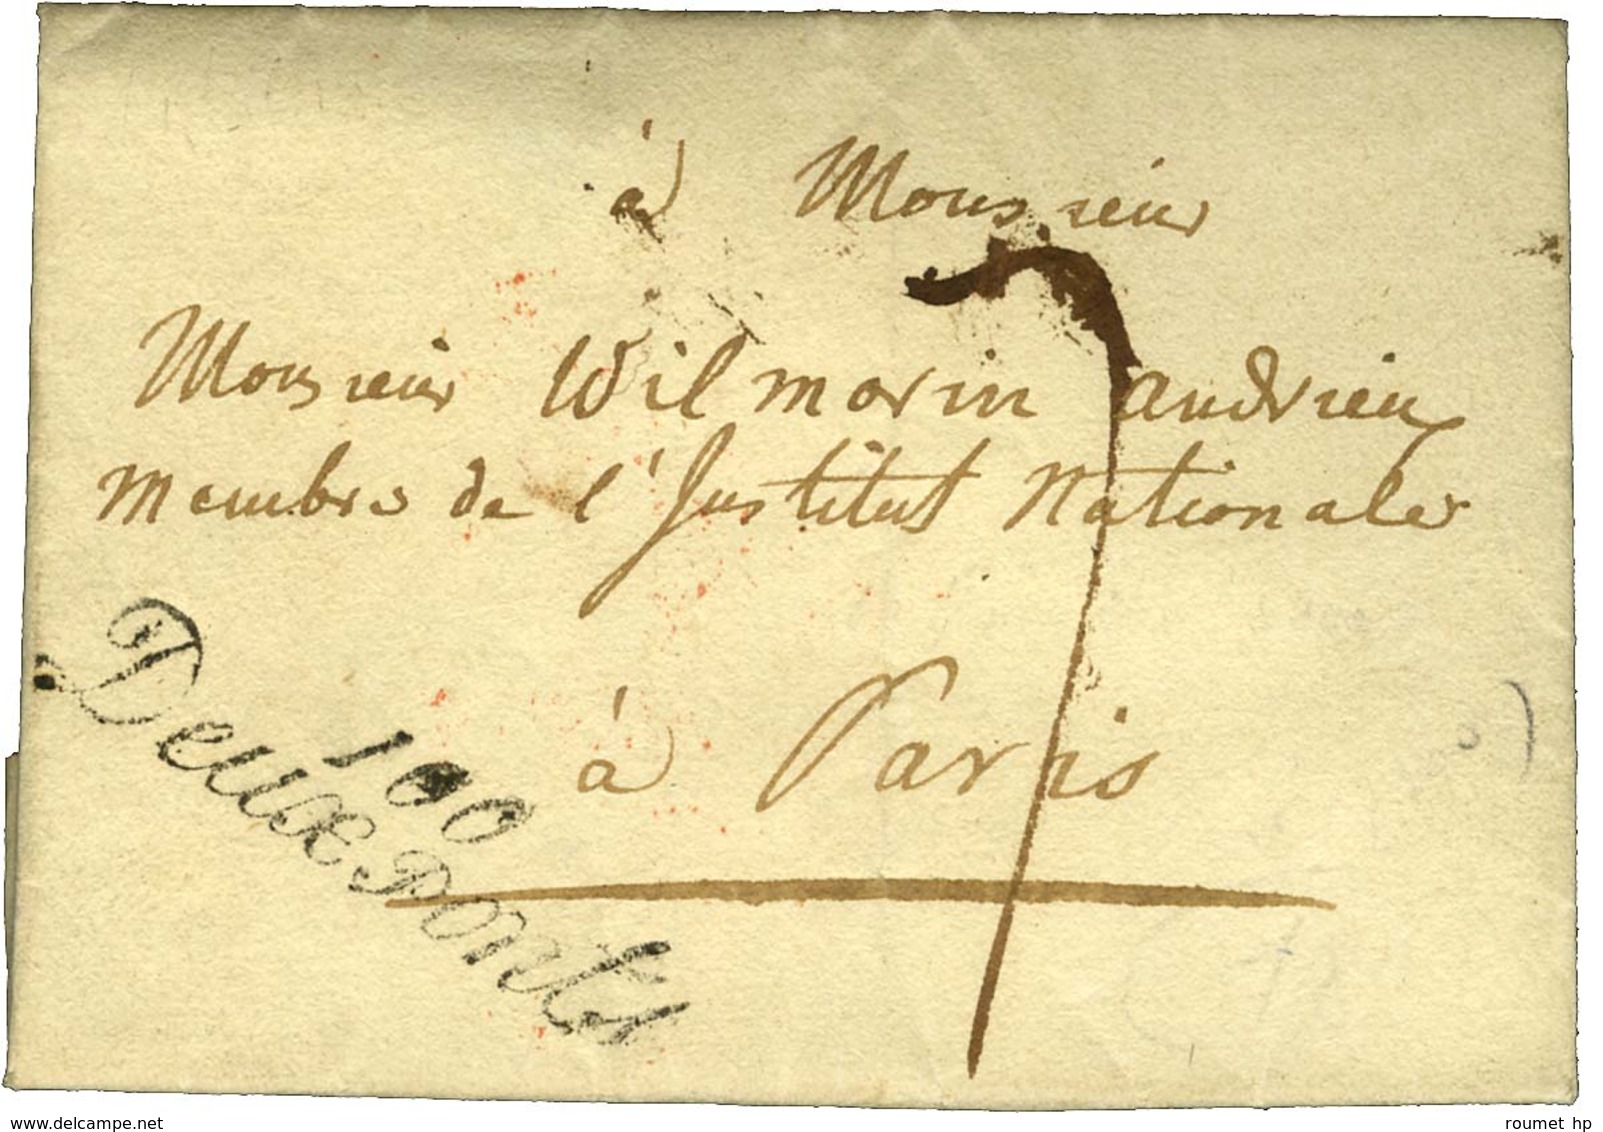 à Monsieur
Monsieur Wilmorin andrieu
membre de l'Institut Nationale
à Paris
7
100
Deux Ponts
delcampe.net
roumet hp